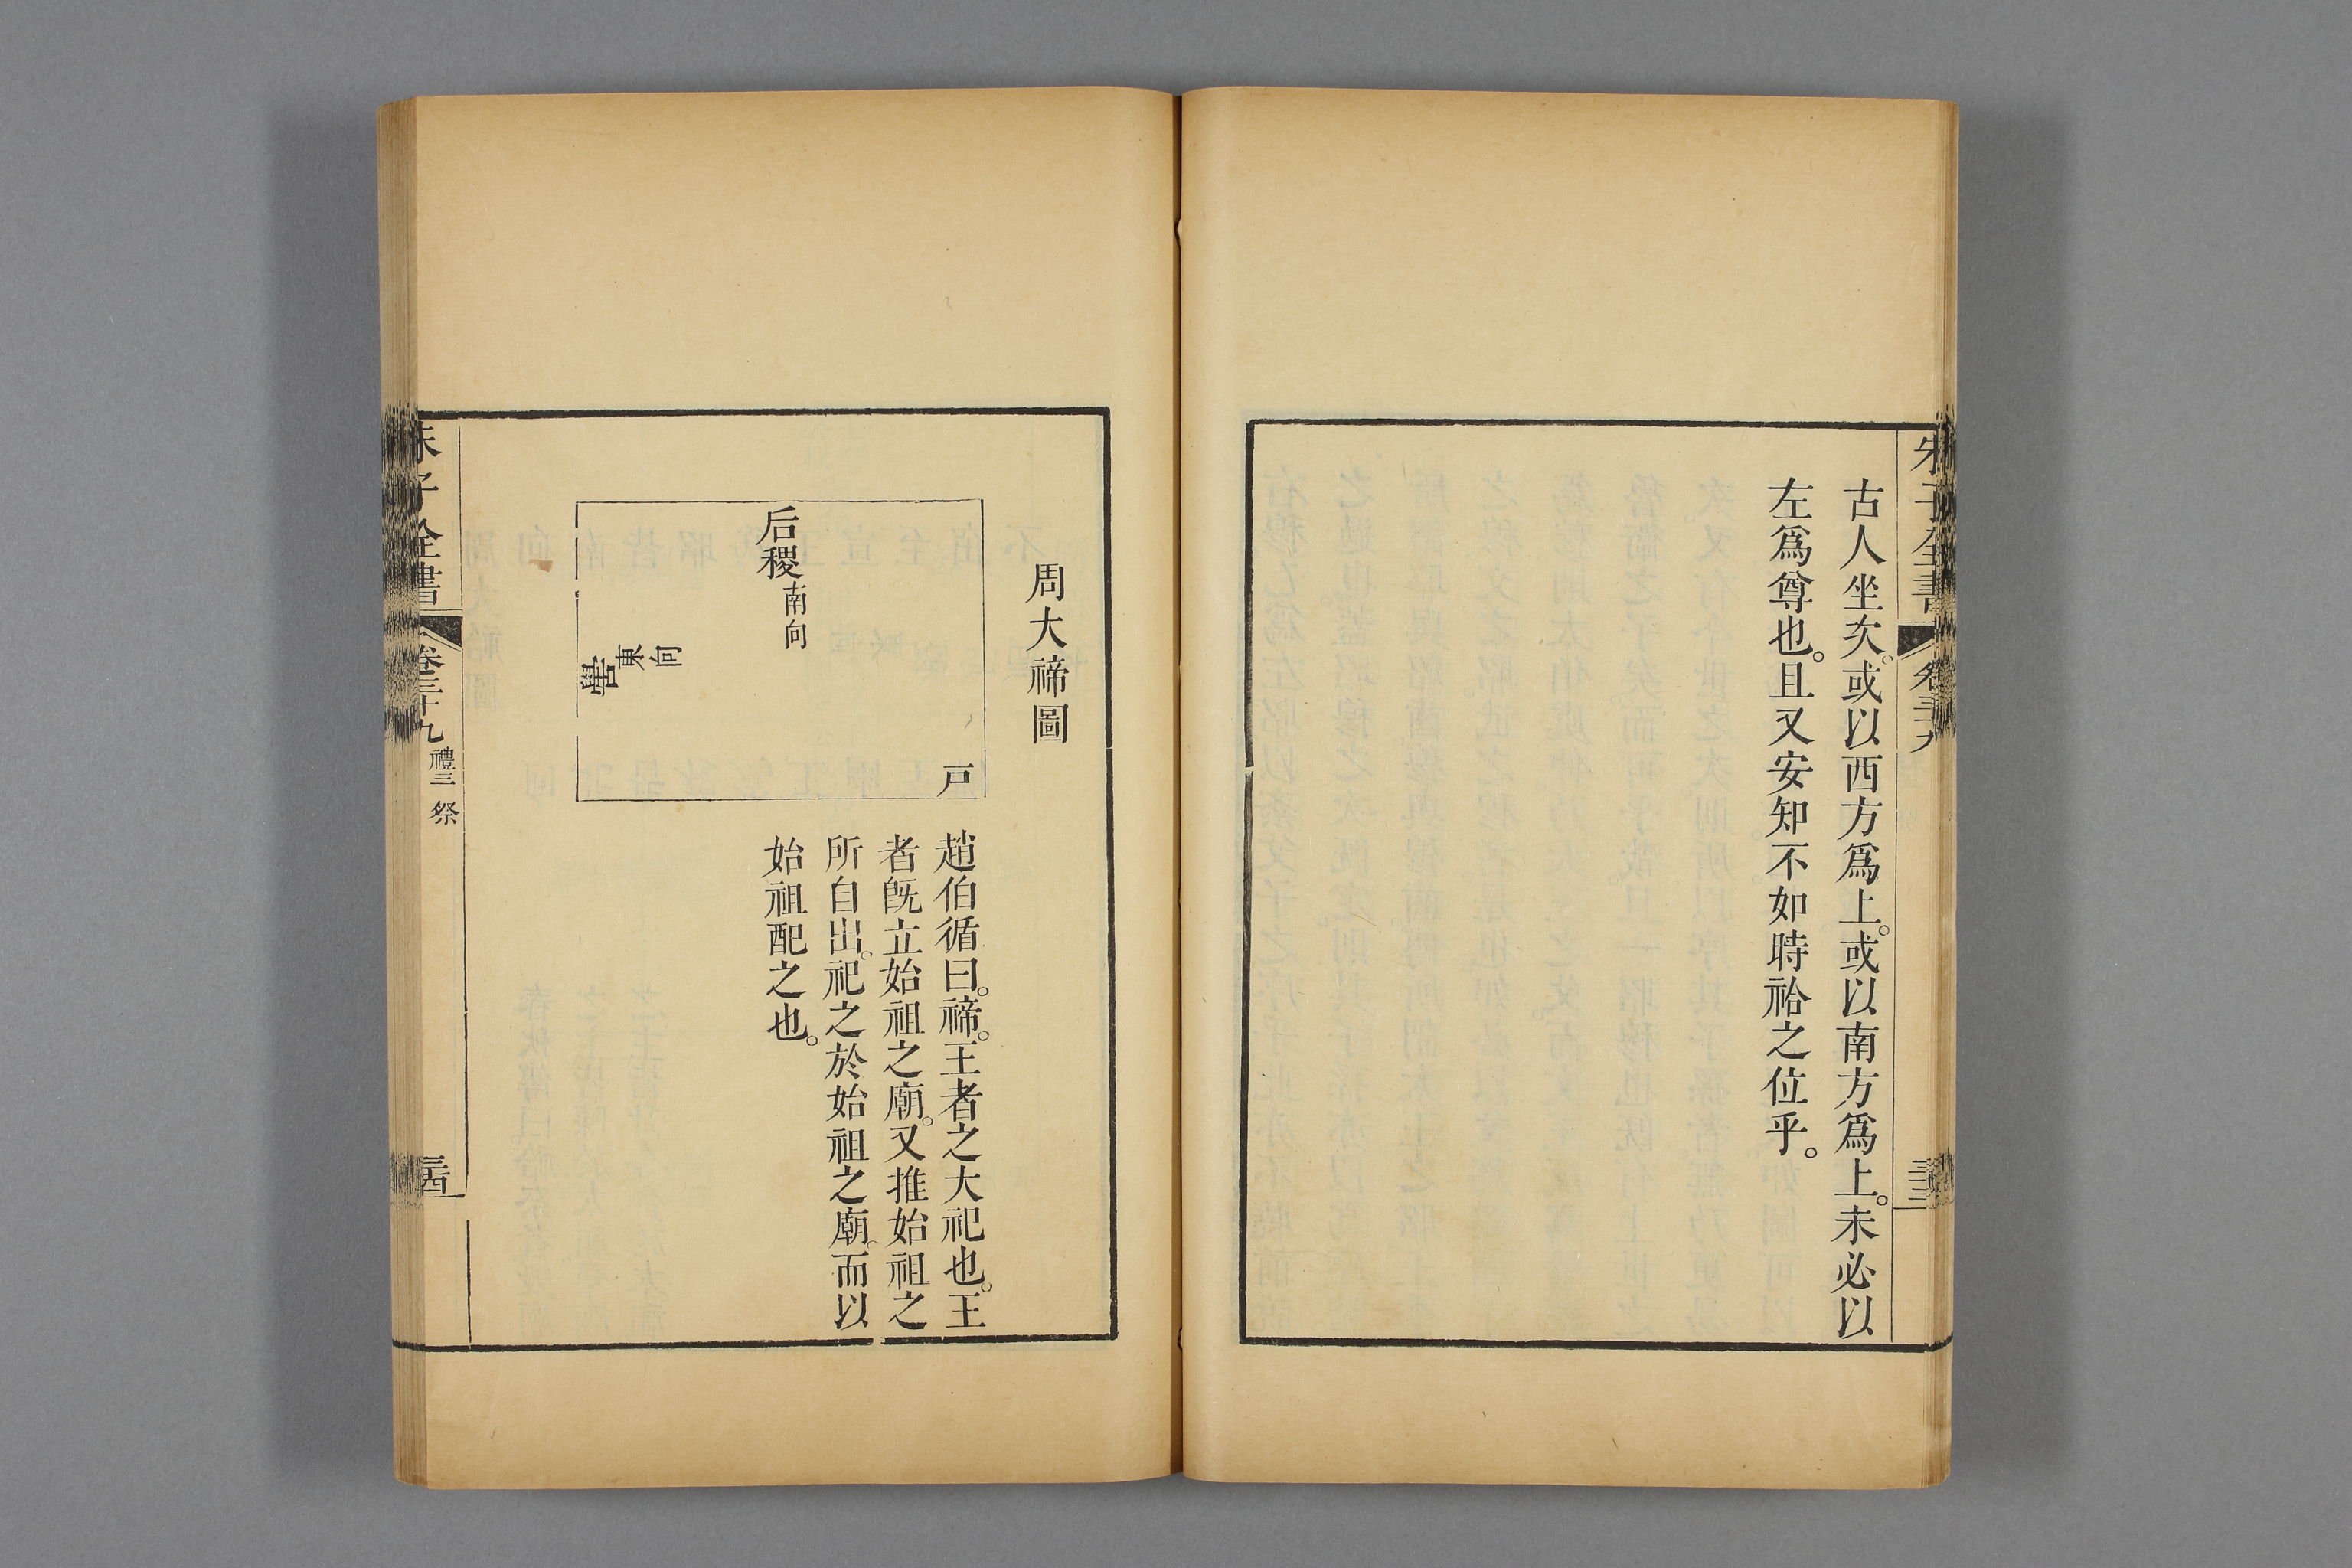 朱子全書
卷三十九
三十三
古人坐次。或以西方爲上。或以南方爲上。未必以
左爲尊也。且又安知不如時祫之位乎。
周大禘圖
戸
后稷南向
嚳東向
趙伯循曰。禘。王者之大祀也。王
者旣立始祖之廟。又推始祖之
所自出。祀之於始祖之廟。而以
始祖配之也。
朱子全書
卷三十九
禮三
祭
三十四